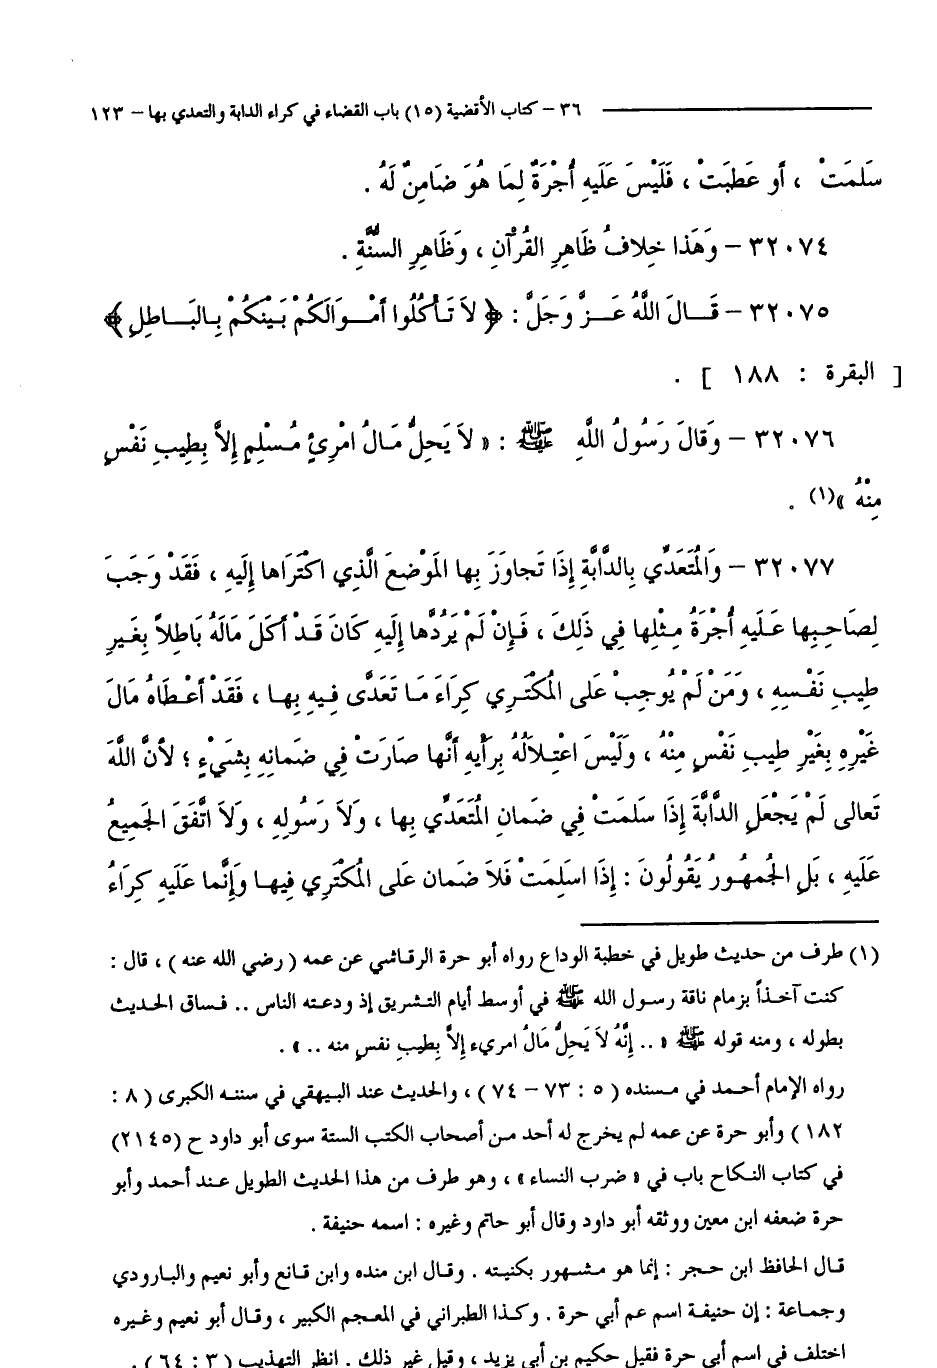 ٣٦ – كتاب الأقضية (١٥) باب القضاء في كراء الدابة والتعدي بها – ١٢٣
سَلَمَتْ ، أَو عَطِبَتْ ، فَلَيْسَ عَلَيهِ أُجْرَةٌ لِمَا هُوَ ضَامِنٌ لَهُ .
٣٢٠٧٤ – وَهَذا خِلافُ ظَاهِرِ القُرْآنِ ، وَظَاهِرِ السُّنَّةِ .
٣٢٠٧٥ – قَـالَ اللَّهُ عَـزَّ وَجَلَّ : ﴿ لاَ تَأْكُلُوا أَمْـوَالَكُمْ بَيْنَكُمْ بِالبَـاطِلِ ﴾
[ البقرة : ١٨٨ ] .
٣٢٠٧٦ – وَقالَ رَسُولُ اللَّهِ ﷺ : « لاَ يَحِلُّ مَـالُ امْرِئٍ مُـسْلِمٍ إِلاَّ بِطِيبِ نَفْسٍ
مِنْهُ »(١) .
٣٢٠٧٧ – وَالمُتَعَدِّي بِالدَّابَّةِ إِذَا تَجاوَزَ بِها المَوْضعَ الَّذِي اكْتَرَاها إِلَيهِ ، فَقَدْ وَجَبَ
لِصَاحِبِها عَـلَيهِ أُجْرَةُ مِـثْلِها فِي ذَلِكَ ، فَـإِنْ لَمْ يَرُدَّها إِلَيهِ كَانَ قَـدْ أَكَلَ مَالَهُ بَاطِلاً بِغَـيرِ
طِيبِ نَفْـسِهِ ، وَمَنْ لَمْ يُوجِبْ عَلى المُكْتَـرِي كِرَاءَ مَـا تَعَدَّى فِـيهِ بِهـا ، فَقَدْ أَعْـطَاهُ مَالَ
غَيْرِهِ بِغَيْرِ طِيبِ نَفْسٍ مِنْهُ ، وَلَيْسَ اعْتِلاَلُهُ بِرَأْيِهِ أَنَّها صَارَتْ فِي ضَمانِهِ بِشَيْءٍ ؛ لأَنَّ اللَّهَ
تَعالى لَمْ يَجْعَلِ الدَّابَّةَ إِذَا سَلَمَتْ فِي ضَمانِ المُتَعَدِّي بِها ، وَلاَ رَسُولِهِ ، وَلاَ اتَّفَقَ الجَمِيعُ
عَلَيهِ ، بَلِ الجُمهُـورُ يَقُولُونَ : إِذَا اسَلِمَتْ فَلاَ ضَمان عَلى المُكْتَرِي فِيهـا وَإِنَّما عَلَيهِ كِرَاءُ
(١) طرف من حديث طويل في خطبة الوداع رواه أبو حرة الرقاشي عن عمه ( رضي الله عنه ) ، قال :
كنت آخـذاً بزمام ناقة رسـول الله ﷺ في أوسط أيام التشريق إذ ودعـته الناس .. فـساق الحـديث
بطوله ، ومنه قوله ﷺ « .. إِنَّهُ لاَ يَحِلُّ مَالُ امريء إِلاَّ بِطيبِ نفسٍ منه .. » .
رواه الإمام أحـمد في مـسنده ( ٥ : ٧٣ – ٧٤ ) ، والحديث عند البـيهقي في سننـه الكبرى ( ٨ :
١٨٢ ) وأبو حرة عن عمه لم يخرج له أحد مـن أصحاب الكتب الستة سوى أبو داود ح (٢١٤٥)
في كتاب النـكاح باب في « ضرب النساء » ، وهو طرف من هذا الحديث الطويل عـند أحمد وأبو
حرة ضعفه ابن معين ووثقه أبو داود وقال أبو حاتم وغيره : اسمه حنيفة .
قـال الحافظ ابن حـجر : إنما هو مشـهور بكنيته . وقـال ابن منده وابن قـانع وأبو نعيم والبـارودي
وجمـاعة : إن حنيفـة اسم عم أبي حرة . وكـذا الطبراني في المعجم الكبير ، وقـال أبو نعيم وغـيره
اختلف في اسم أبي حرة فقيل حكيم بن أبي يزيد ، وقيل غير ذلك . انظر التهذيب ( ٣ : ٦٤ ) .